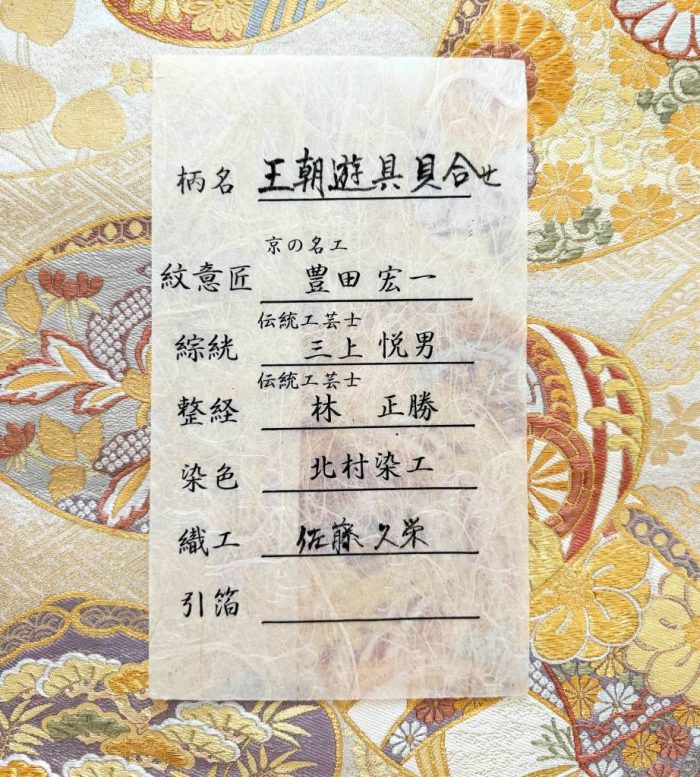 柄名 王朝遊具貝合せ
京の名工
紋意匠 豊田 宏一
伝統工芸士
綜絖 三上 悦男
伝統工芸士
整経 林 正勝
染色 北村染工
織工 佐藤久栄
引箔